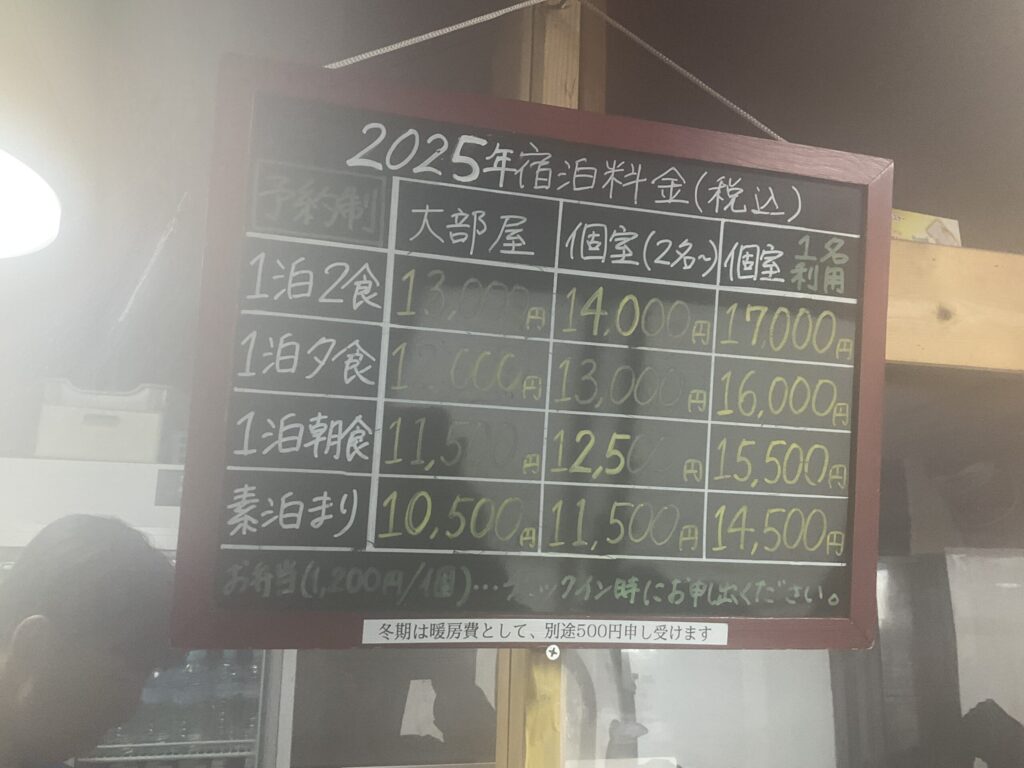 2025年宿泊料金(税込)
予約制 大部屋 個室(2名~) 個室 1名利用
1泊2食 13,000円 14,000円 17,000円
1泊夕食 12,000円 13,000円 16,000円
1泊朝食 11,500円 12,5 円 15,500円
素泊まり 10,500円 11,500円 14,500円
お弁当(1,200円/1個)…チェックイン時にお申出ください。
冬期は暖房費として、別途500円申し受けます